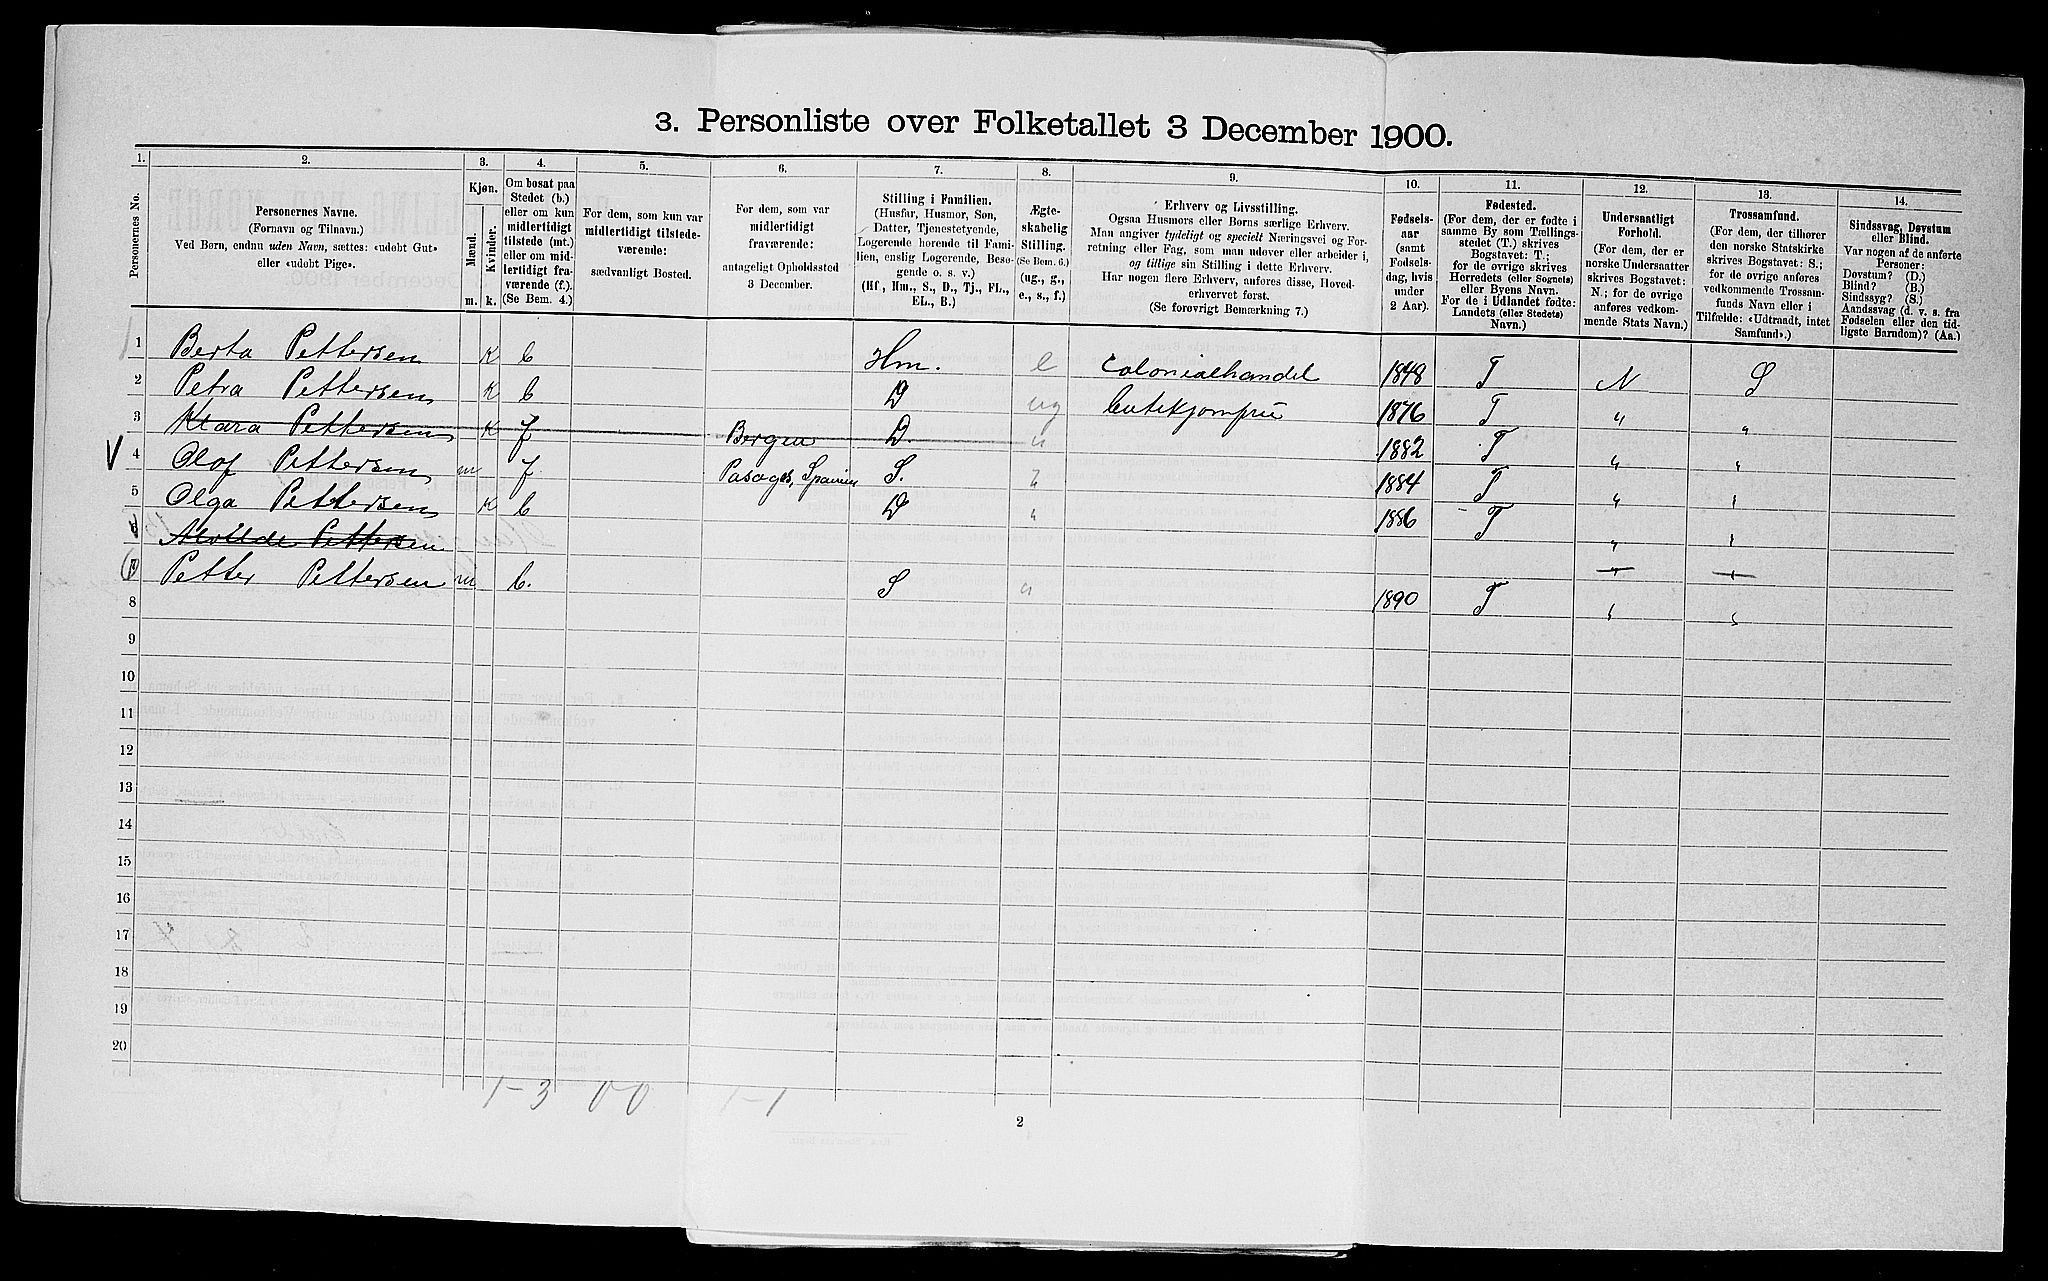 3. Personliste over Folketallet 3 December 1900.
1. 2. 3. 4. 5. 6. 7. 8. 9. 10. 11. 12. 13. 14.
Personernes No.
Personernes Navne.
(Fornavn og Tilnavn.)
Ved Børn, endnu uden Navn, sættes: «udøbt Gut»
eller «udøbt Pige».
Kjøn.
Mænd.
Kvinder.
m. k.
Om bosat paa
Stedet (b.)
eller om kun
midlertidigt
tilstede (mt.)
eller om mid-
lertidigt fra-
værende (f.).
(Se Bem. 4.)
For dem, som kun var
midlertidigt tilstede-
værende:
sædvanligt Bosted.
For dem, som var
midlertidigt
fraværende:
antageligt Opholdssted
3 December.
Stilling i Familien.
(Husfar, Husmor, Søn,
Datter, Tjenestetyende,
Logerende hørende til Fami-
lien, enslig Logerende, Besø-
gende o. s. v.)
(Hf, Hm., S., D., Tj., FL.,
EL., B.)
Ægte-
skabelig
Stilling.
(Se Bem. 6.)
(ug., g.,
e., s., f.)
Erhverv og Livsstilling.
Ogsaa Husmors eller Børns særlige Erhverv.
Man angiver tydeligt og specielt Næringsvei og For-
retning eller Fag, som man udøver eller arbeider i,
og tillige sin Stilling i dette Erhverv.
Har nogen flere Erhverv, anføres disse, Hoved-
erhvervet først.
(Se forøvrigt Bemærkning 7.)
Fødsels-
aar
(samt
Fødsels-
dag, hvis
under
2 Aar).
Fødested.
(For dem, der er fødte i
samme By som Tællings-
stedet (T.) skrives
Bogstavet: T.;
for de øvrige skrives
Herredets (eller Sognets)
eller Byens Navn.
For de i Udlandet fødte:
Landets (eller Stedets)
Navn.)
Undersaatligt
Forhold.
(For dem, der er
norske Undersaatter
skrives Bogstavet:
N.; for de øvrige
anføres vedkom-
mende Stats Navn.)
Trossamfund.
(For dem, der tilhører
den norske Statskirke
skrives Bogstavet: S.;
for de øvrige anføres
vedkommende Trossam-
funds Navn eller i
Tilfælde: «Udtraadt, intet
Samfund».)
Sindssvag, Døvstum
eller Blind.
Var nogen af de anførte
Personer:
Døvstum? (D.)
Blind? (B.)
Sindssyg? (S.)
Aandssvag (d. v. s. fra
Fødselen eller den tid-
ligste Barndom)? (Aa.)
1 Berta Pettersen K b Hm. e Colonialhandel 1848 T N S
2 Petra Pettersen K b D ug 1876 T „ „
3 Klara Pettersen K f Bergen D. „ 1882 T „ „
V 4 Olof Pettersen m f Pasages, Spanien S. „ 1884 T „ „
5 Olga Pettersen K b D „ 1886 T „ „
Pettersen „ „
Petter Pettersen m b. S „ 1890 T „ „
8
9
10
11
12
13
14
15
16
17
18
19
20
1-3 0 0 1-1
2